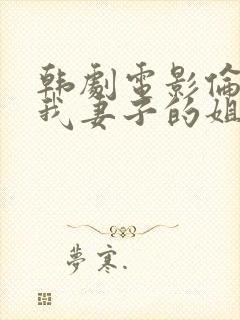 韩劇電影倫
我妻子的姐
夢寒.